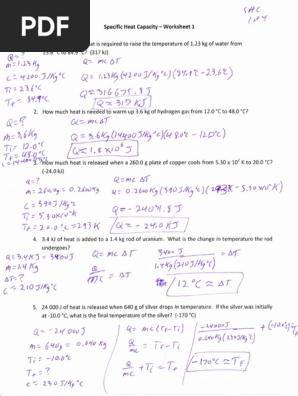 PDF
SHC
1 of 4
Specific Heat Capacity – Worksheet 1
heat is required to raise the temperature of 1.23 kg of water from
23.6°C to 84.9°C? (317 kJ)
Q=?
m=1.23Kg
C=4200 J/Kg°C
Ti=23.6°C
Tf=84.9°C
Q=mcΔT
Q=1.23Kg(4200 J/Kg°C)(84.9°C-23.6°C)
Q=316675.8J
Q≈317 KJ
2. How much heat is needed to warm up 3.6 kg of hydrogen gas from 12.0 °C to 48.0 °C?
Q=?
m=3.6Kg
Ti=12.0°C
Tf=48.0°C
Q=mcΔT
Q=3.6Kg(14400 J/Kg°C)(48.0°C-12.0°C)
Q≈1.8×10⁶ J
3. How much heat is released when a 260.0 g plate of copper cools from 5.30 x 10² K to 20.0 °C?
(-24.0 kJ)
Q=?
m=260.0g=0.2600Kg
C=390 J/Kg°C
Ti=5.30×10²K
Tf=20.0°C=293K
Q=mcΔT
Q=-24.0KJ
4. 3.4 kJ of heat is added to a 1.4 kg rod of uranium. What is the change in temperature the rod
undergoes?
Q=3.4KJ=3400J
m=1.4Kg
ΔT=?
C=210 J/Kg°C
Q=mcΔT
Q/mc=ΔT
3400 J
1.4Kg(210 J/Kg°C)
=ΔT
12°C≈ΔT
5. 24 000 J of heat is released when 640 g of silver drops in temperature. If the silver was initially
at -10.0 °C, what is the final temperature of the silver? (-170 °C)
Q=-24000J
m=640g=0.640Kg
Ti=-10.0°C
Tf=?
C=230 J/Kg°C
Q=mc(Tf-Ti)
Q/mc=Tf-Ti
Q/mc+Ti=Tf
-24000J
0.640Kg(230 J/Kg°C)
+(-10.0°C)
=Tf
-170°C≈Tf